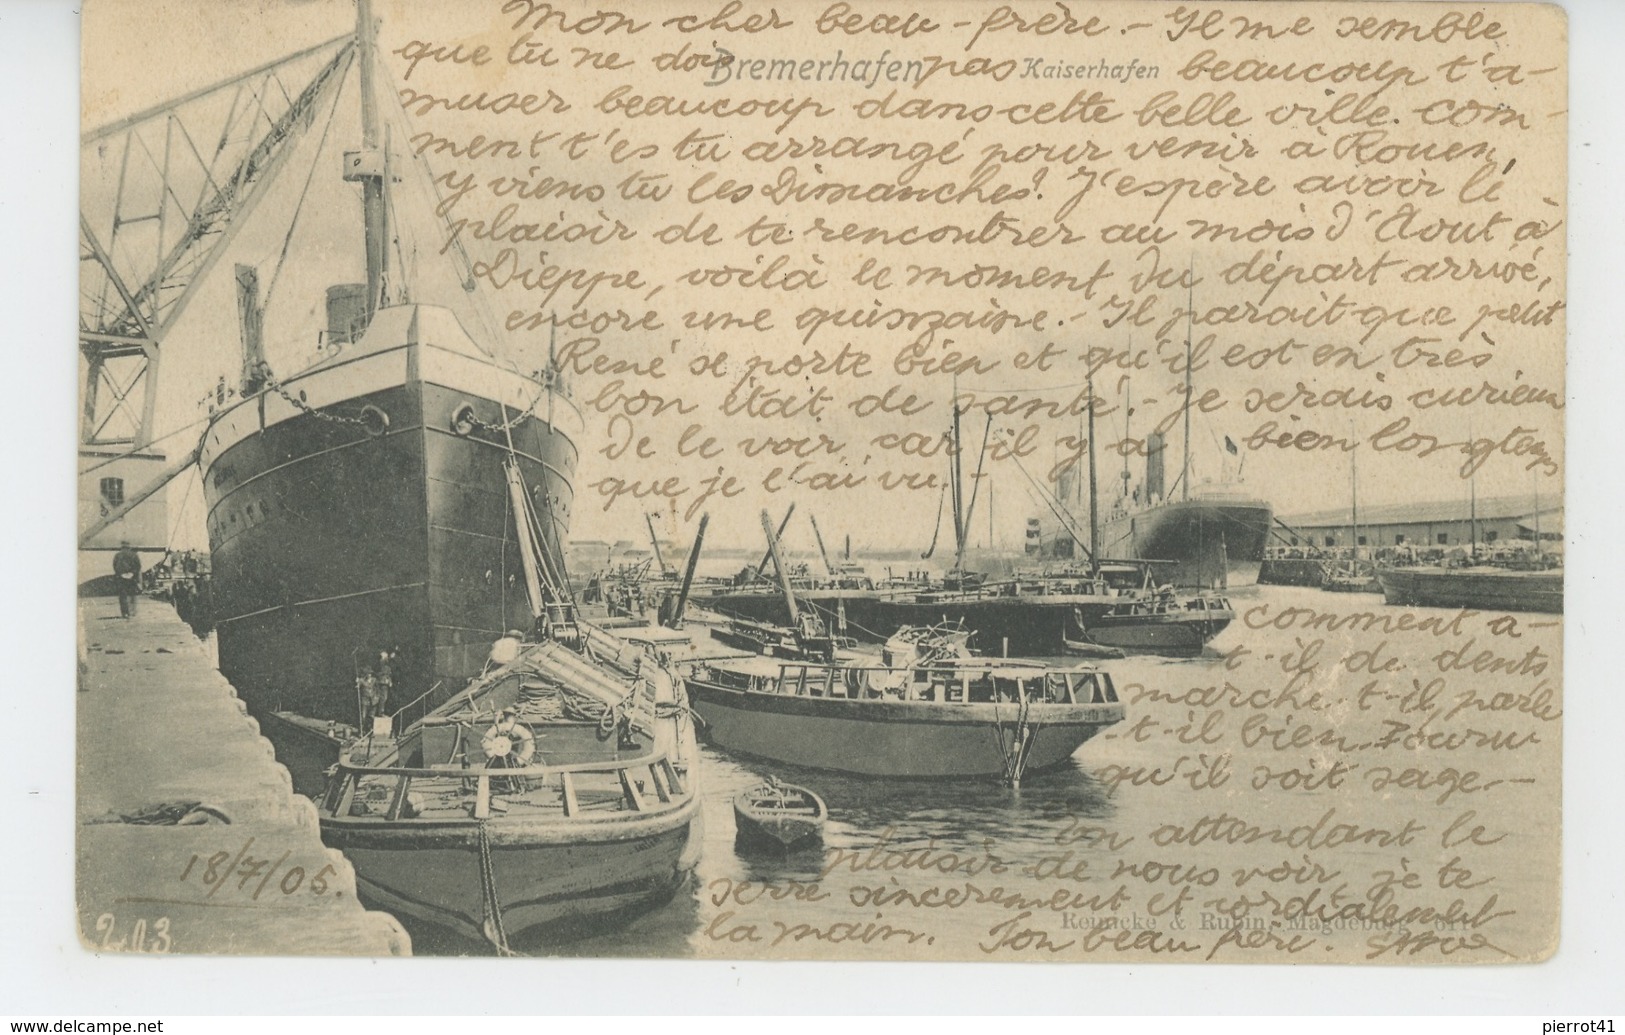 Mon cher beau-frère.- Il me semble
que tu ne dois pas beaucoup t'a-
Bremerhafen Kaiserhafen
muser beaucoup dans cette belle ville. Com-
ment t'es tu arrangé pour venir à Rouen,
y viens tu les Dimanches? J'espère avoir le
plaisir de te rencontrer au mois d'Aout à
Dieppe, voilà le moment du départ arrivé,
encore une quinzaine.- Il parait que petit
René se porte bien et qu'il est en très
bon état de santé.- Je serais curieux
de le voir, car il y a bien longtemps
que je l'ai vu.-
comment a-
t-il de dents
marche t-il, parle
-t-il bien. Pourvu
qu'il soit sage.-
En attendant le
plaisir de nous voir, je te
serre sincerement et cordialement
la main. Ton beau frère.
Reinicke & Rubin, Magdeburg 611
18/7/05.
203
www.delcampe.net
pierrot41